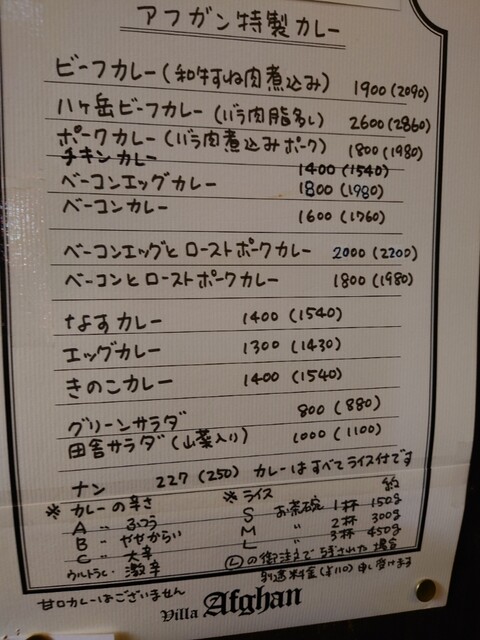 アフガン特製カレー
ビーフカレー(和牛すね肉煮込み) 1900(2090)
八ヶ岳ビーフカレー(バラ肉脂多し) 2600(2860)
ポークカレー(バラ肉煮込みポーク) 1800(1980)
チキンカレー 1400(1540)
ベーコンエッグカレー 1800(1980)
ベーコンカレー 1600(1760)
ベーコンエッグとローストポークカレー 2000(2200)
ベーコンとローストポークカレー 1800(1980)
なすカレー 1400(1540)
エッグカレー 1300(1430)
きのこカレー 1400(1540)
グリーンサラダ 800(880)
田舎サラダ(山菜入り) 1000(1100)
ナン 227(250) カレーはすべてライス付です
※カレーの辛さ ※ライス 約
A 〃 ふつう S お茶碗 1杯 150g
B 〃 ややからい M 〃 2杯 300g
C 〃 大辛 L 〃 3杯 450g
ウルトラC 〃 激辛 Ⓛの御注文で残された場合
別途料金(¥110)申し受けます
甘口カレーはございません
Villa Afghan